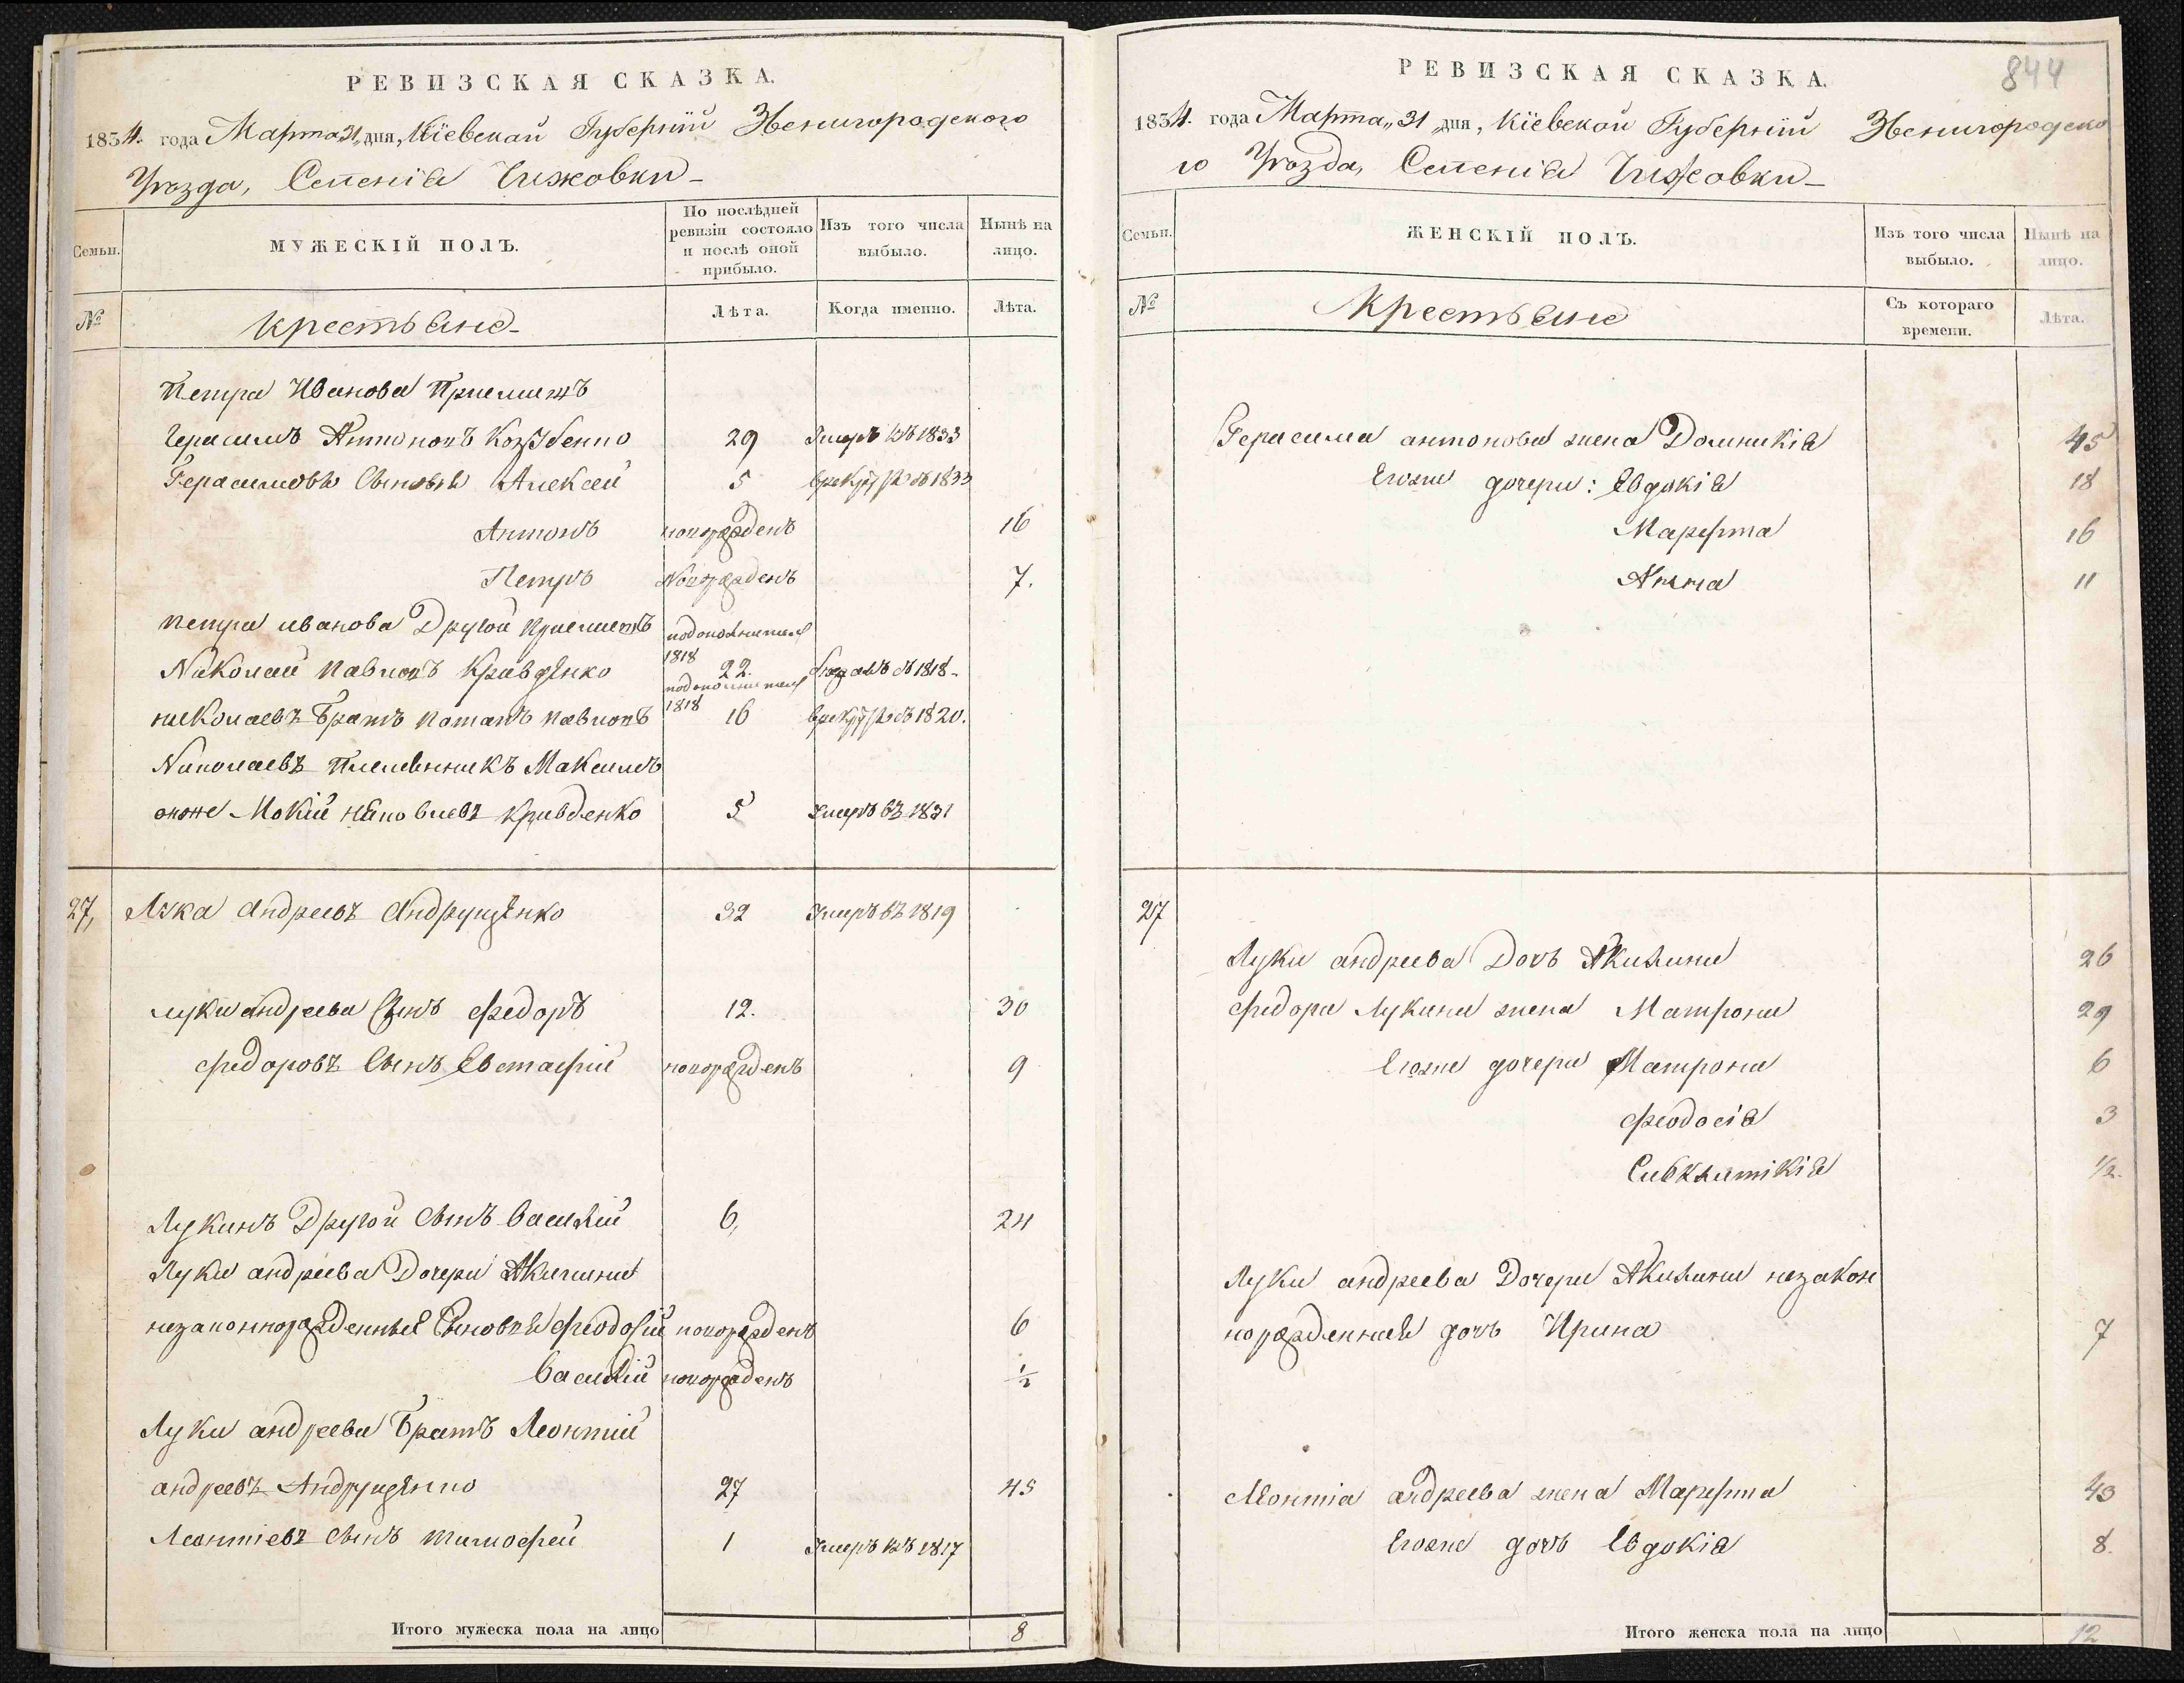 РЕВИЗСКАЯ СКАЗКА.
1834. года Марта 31, дня, Кіевской Губерніи Звенигородского
Уѣзда, Селенія Чижовки
Семьи.
МУЖЕСКІЙ ПОЛЪ.
По послѣдней ревизіи состояло и послѣ оной прибыло.
Изъ того числа выбыло.
Нынѣ на лицо.
№
Крестьяне
Лѣта.
Когда именно.
Лѣта.
Петра Иванова Приемишъ
Герасимъ Антоновъ 29 Умеръ въ 1833
Герасимовы Сыновья Алексей 5 в 1833
Антонъ новорожденъ 16
Петръ Новорожденъ 7.
Петра иванова Другой приемишъ
Николай Павловъ Кравденко 1818 22. бежалъ въ 1818
николаевъ Братъ Потапъ Павловъ 1818 16 въ 1820.
Николаевъ Племенникъ Максимъ
онже Мокій Кравденко 5 Умеръ въ 1831
27, Лука Андреевъ Андрущенко 32 Умеръ въ 1819
луки андреева Сынъ федоръ 12. 30
федоровъ Сынъ Евстафій новорожденъ 9
Лукинъ Другой Сынъ Василій 6, 24
Луки андреева Дочери Акилины
незаконнорожденные Сыновья феодосій новорожденъ 6
Василій новорожденъ ½
Луки андреева Братъ Леонтій
андреевъ Андрущенко 27 45
Леонтіевъ Сынъ тимофей 1 Умеръ въ 1817
Итого мужеска пола на лицо 8
844
РЕВИЗСКАЯ СКАЗКА.
1834. года Марта „31 дня, Кіевской Губерніи Звенигородско
го Уѣзда, Селенія Чижовки
Семьи.
ЖЕНСКІЙ ПОЛЪ.
Изъ того числа выбыло.
Нынѣ на лицо.
№
Крестьяне
Съ котораго времени.
Лѣта.
Герасима антонова жена Домникія 45
Егоже дочери: Евдокія 18
Марфта 16
Анна 11
27
Луки андреева Дочь Акилина 26
федора Лукина жена Матрона 29
Егоже дочери Матрона 6
феодосія 3
Сивклитікія ½.
Луки андреева Дочери Акилини незакон
норожденная дочь Ирина 7
Леонтіа андреева жена Марфта 43
Егоже дочь Евдокія 8.
Итого женска пола на лицо 12